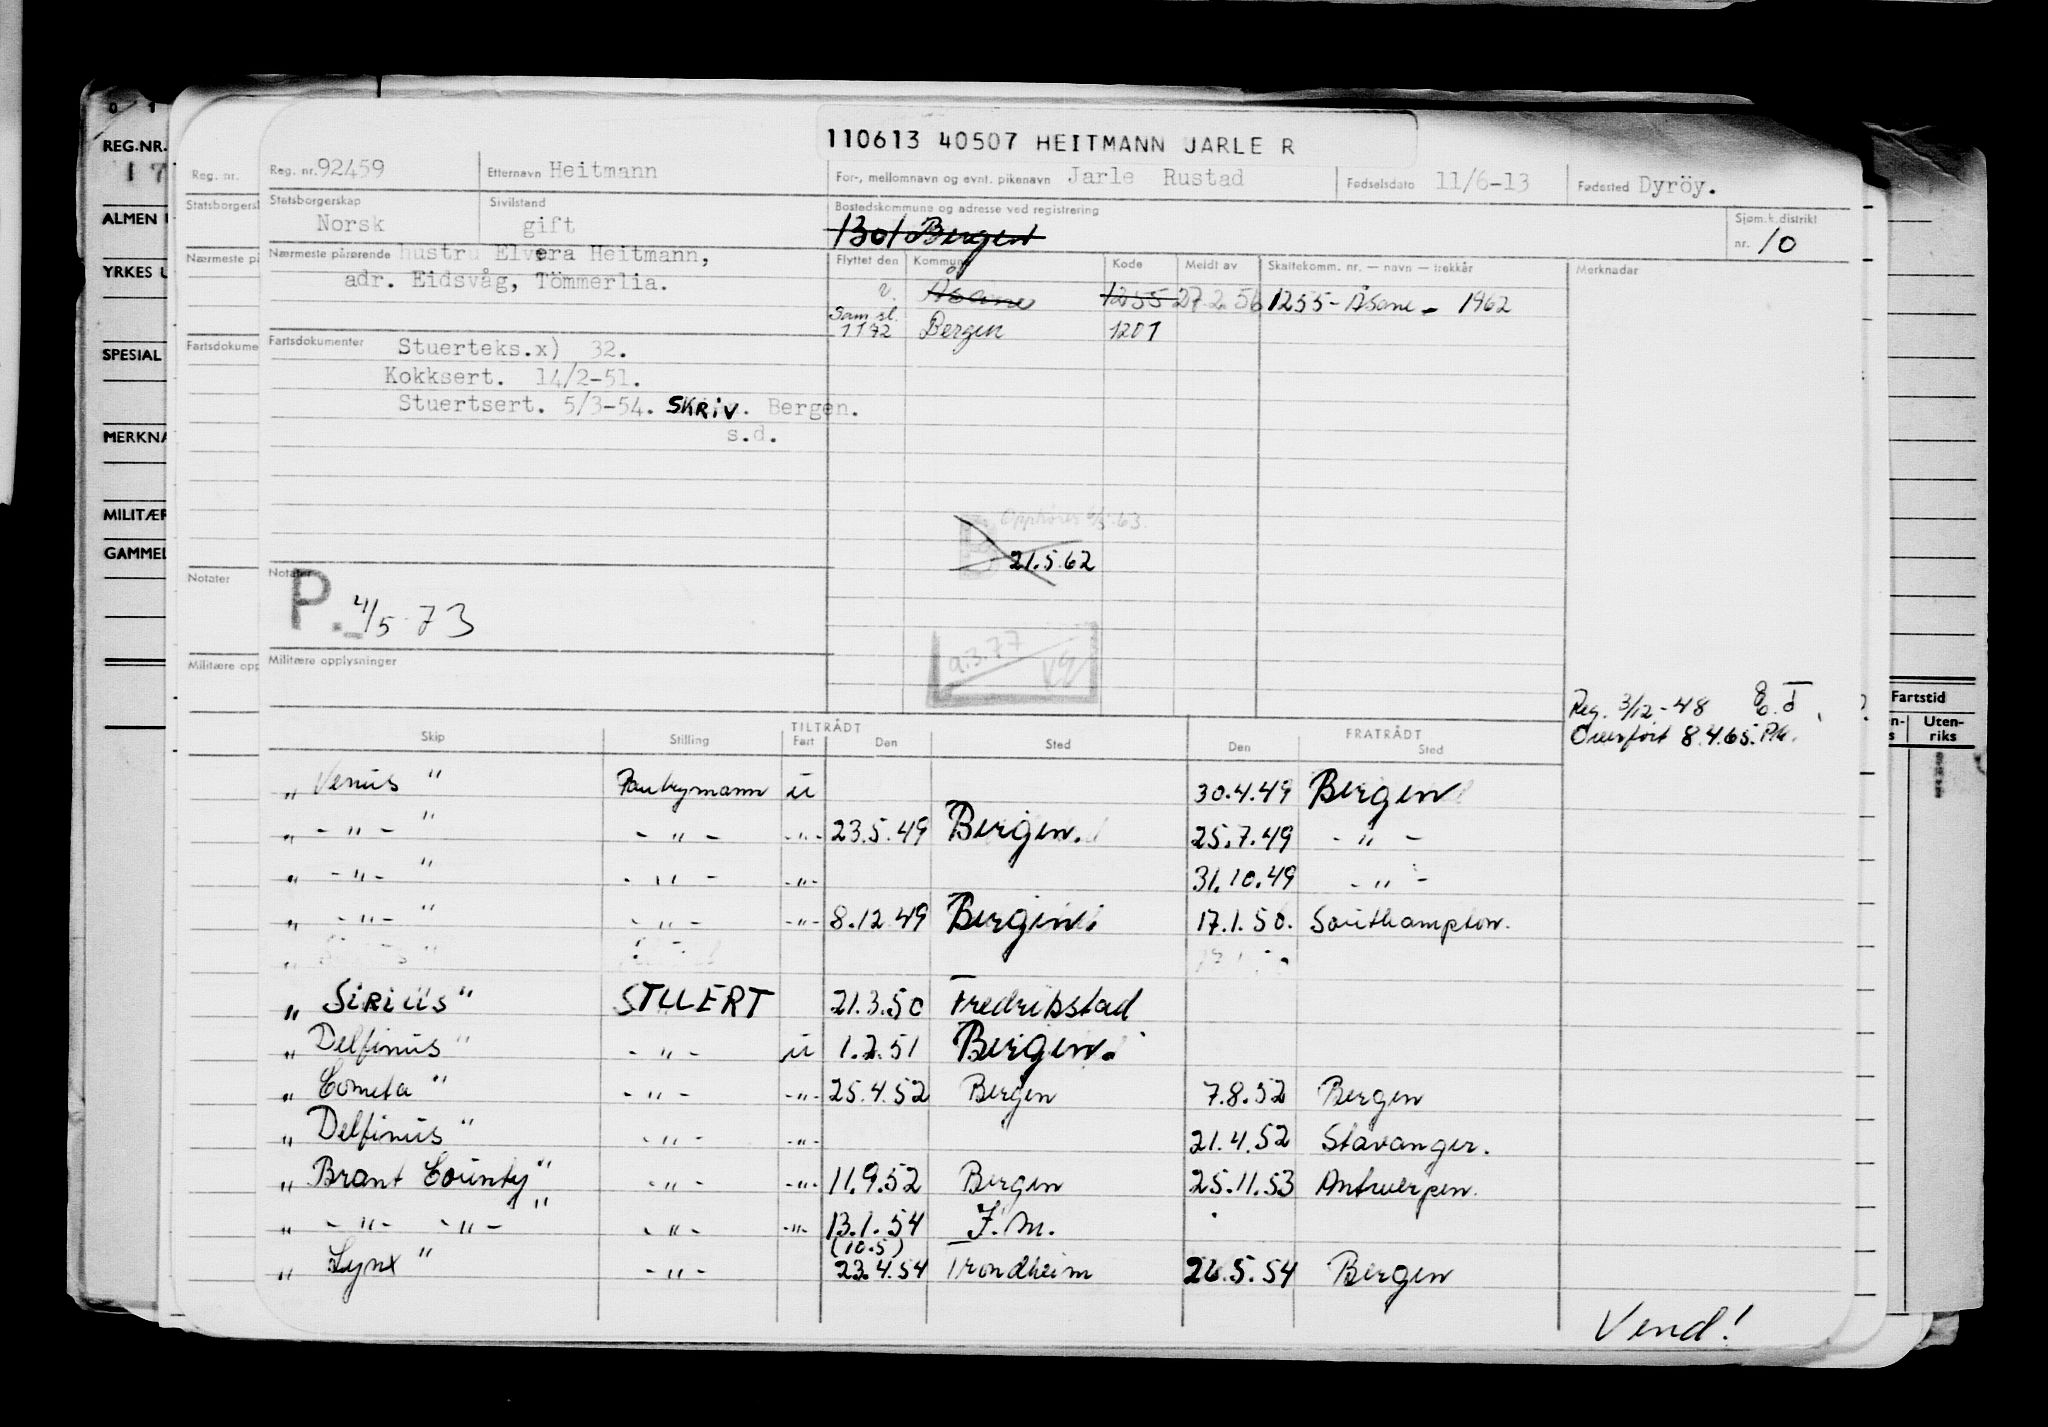 0 1
REG.NR.
17
ALMEN
YRKES
SPESIAL
MERKNA
MILITÆR
GAMMEL
Reg. nr.
Statsborgersk
Nærmeste på
Fartsdokume
Notater
Militære opp
110613 40507 HEITMANN JARLE R
Reg. nr. 92459 Etternavn Heitmann For-, mellomnavn og evnt. pikenavn Jarle Rustad Fødselsdato 11/6-13 Fødested Dyröy.
Statsborgerskap Norsk Sivilstand gift Bostedskommune og adresse ved registrering 1301 Bergen Sjøm.k.distrikt nr. 10
Nærmeste pårørende hustru Elvera Heitmann,
adr. Eidsvåg, Tömmerlia.
Flyttet den Kommune Kode Meldt av Skattekomm. nr. — navn — trekkår Merknader
v. Åsane 1255 27.2.56 1255 - Åsane - 1962
Sam.sl. 1172 Bergen 1201
Fartsdokumenter Stuerteks.x) 32.
Kokksert. 14/2-51.
Stuertsert. 5/3-54. SKRIV. Bergen.
s.d.
Opphører 63.
21.5.62
Notater
P. 4/5 73
9.3.77
Militære opplysninger
Reg. 3/12-48 E.J.
Overført 8.4.65.
Fartstid
Uten-
riks
Skip Stilling TILTRÅDT Fart Den Sted FRATRÅDT Den Sted
" Venus " Pantrymann u 30.4.49 Bergen
" - " - " - " - - " - 23.5.49 Bergen. 25.7.49 - " -
" - " - " - " - - " - 31.10.49 - " -
" - " - " - " - - " - 8.12.49 Bergen. 17.1.50. Southampton.
" Sirius " STUERT 21.3.50 Fredrikstad
" Delfinus " - " - u 1.2.51 Bergen.
" Cometa " - " - - " - 25.4.52 Bergen 7.8.52 Bergen
" Delfinus " - " - - " - 21.4.52 Stavanger.
" Brant County " - " - - " - 11.9.52 Bergen 25.11.53 Antwerpen.
" - " - - " - " - " - - " - 13.1.54 F.m.
(10.5)
" Lynx " - " - 23.4.54 Trondheim 26.5.54 Bergen
Vend!